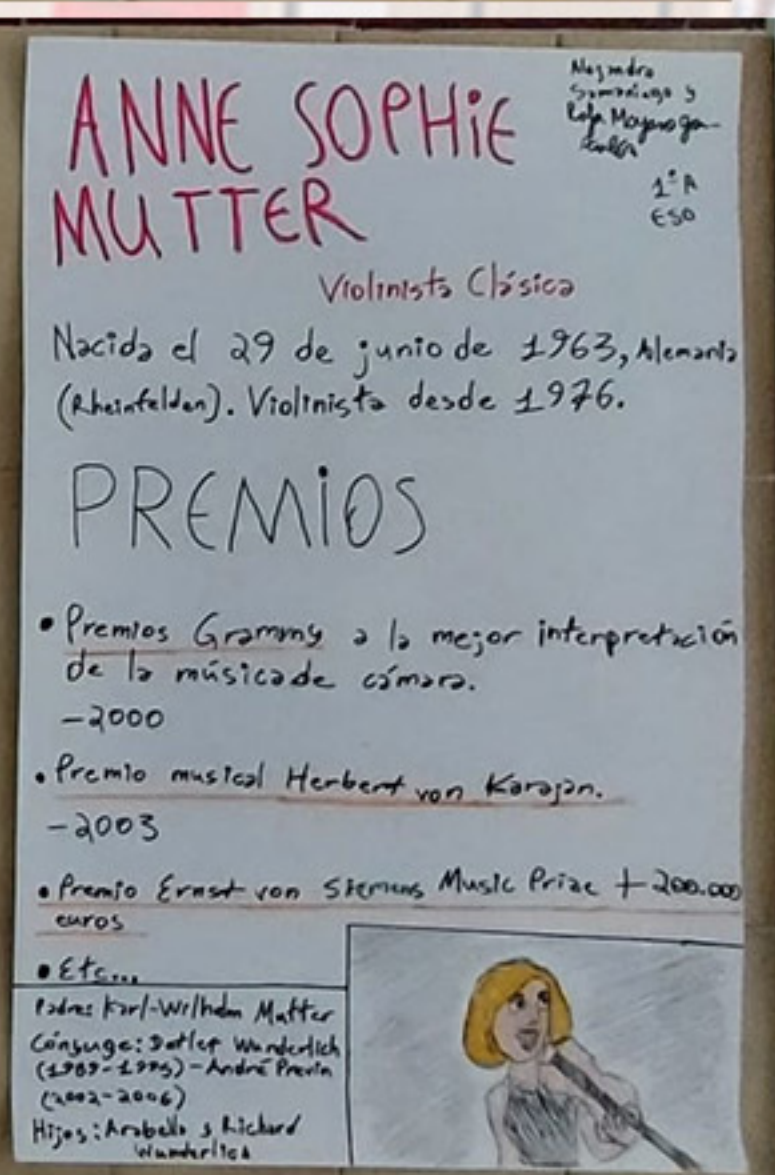 ANNE SOPHIE
MUTTER
Alejandro
Samaniego y
Rafa Moyano
1º A
ESO
Violinista Clásica
Nacida el 29 de junio de 1963, Alemania
(Rheinfelden). Violinista desde 1976.
PREMIOS
• Premios Grammy a la mejor interpretación
de la música de cámara.
-2000
• Premio musical Herbert von Karajan.
-2003
• Premio Ernst von Siemens Music Prize + 200.000
euros
• Etc...
Padre: Karl-Wilhelm Mutter
Cónyuge: Detlef Wunderlich
(1989-1995)-André Previn
(2002-2006)
Hijos: Arabella y Richard
Wunderlich